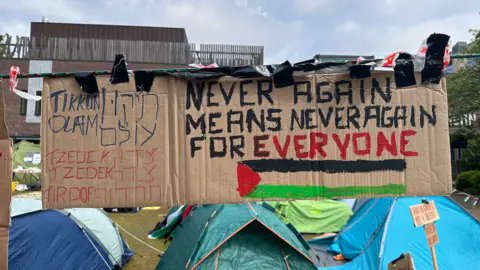 TIKKUN תיקון
OLAM עולם
TZEDEK צדק
TZEDEK צדק
TIRDOF
NEVER AGAIN
MEANS NEVER AGAIN
FOR EVERYONE